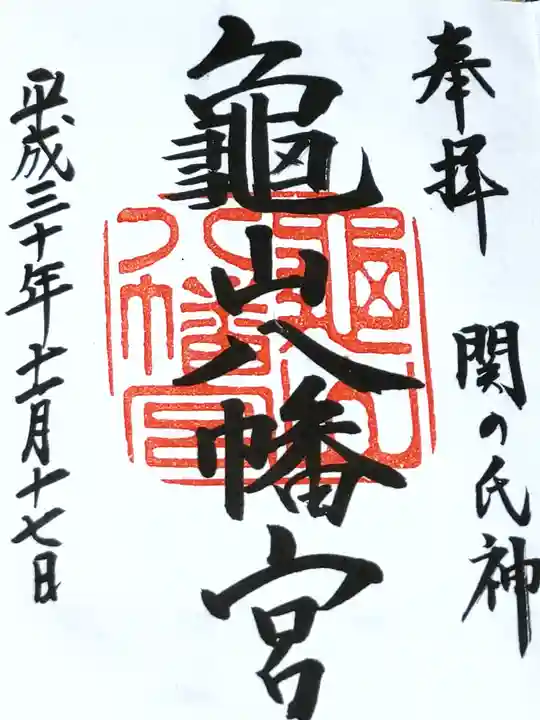 奉拝
関の氏神
龜山八幡宮
平成三十年十一月十七日